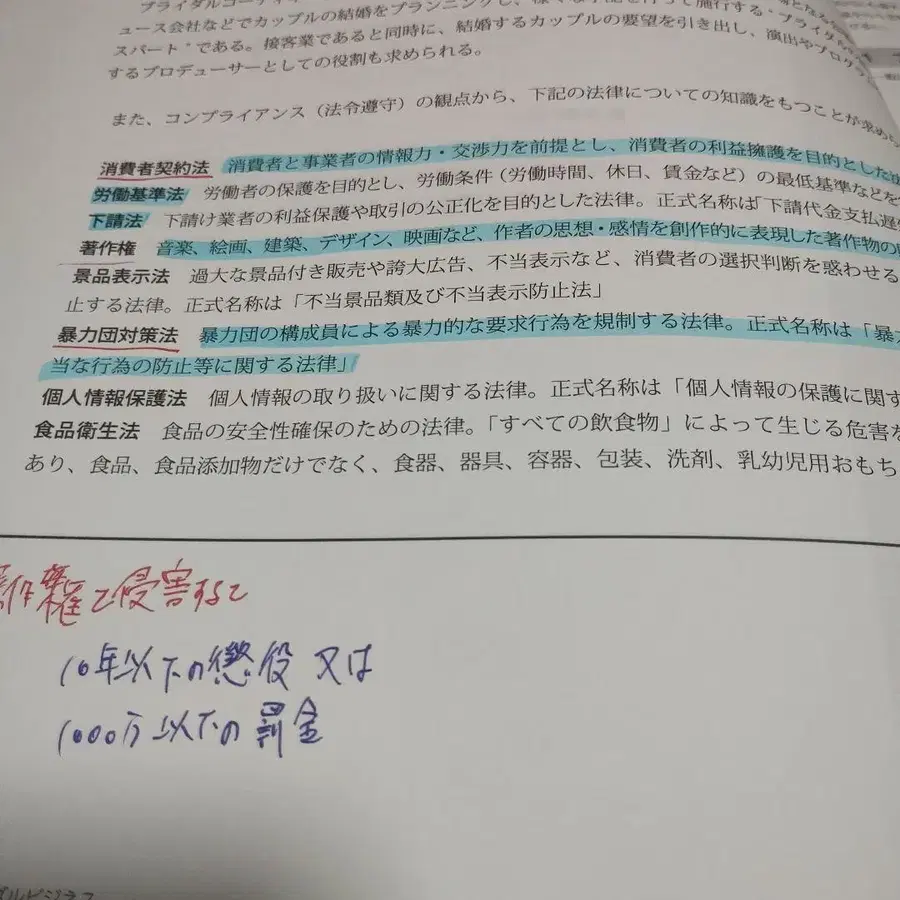 ブライダルコーディ
ュース会社などでカップルの結婚をプランニングし、様々な手配を行って施行する"ブライダルの
スパート"である。接客業であると同時に、結婚するカップルの要望を引き出し、演出やプログラ
するプロデューサーとしての役割も求められる。
また、コンプライアンス（法令遵守）の観点から、下記の法律についての知識をもつことが求め
消費者契約法 消費者と事業者の情報力・交渉力を前提とし、消費者の利益擁護を目的とした
労働基準法 労働者の保護を目的とし、労働条件（労働時間、休日、賃金など）の最低基準などを
下請法 下請け業者の利益保護や取引の公正化を目的とした法律。正式名称は「下請代金支払遅
著作権 音楽、絵画、建築、デザイン、映画など、作者の思想・感情を創作的に表現した著作物の
景品表示法 過大な景品付き販売や誇大広告、不当表示など、消費者の選択判断を惑わせる
止する法律。正式名称は「不当景品類及び不当表示防止法」
暴力団対策法 暴力団の構成員による暴力的な要求行為を規制する法律。正式名称は「暴
当な行為の防止等に関する法律」
個人情報保護法 個人情報の取り扱いに関する法律。正式名称は「個人情報の保護に関す
食品衛生法 食品の安全性確保のための法律。「すべての飲食物」によって生じる危害を
あり、食品、食品添加物だけでなく、食器、器具、容器、包装、洗剤、乳幼児用おもち
作権を侵害すると
10年以下の懲役 又は
1000万以下の罰金
ダルビジネス